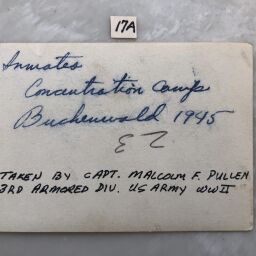 17A
Inmates
Concentration Camp
Buchenwald 1945
EZ
TAKEN BY CAPT. MALCOLM F. PULLEN
3RD ARMORED DIV. US ARMY WWII